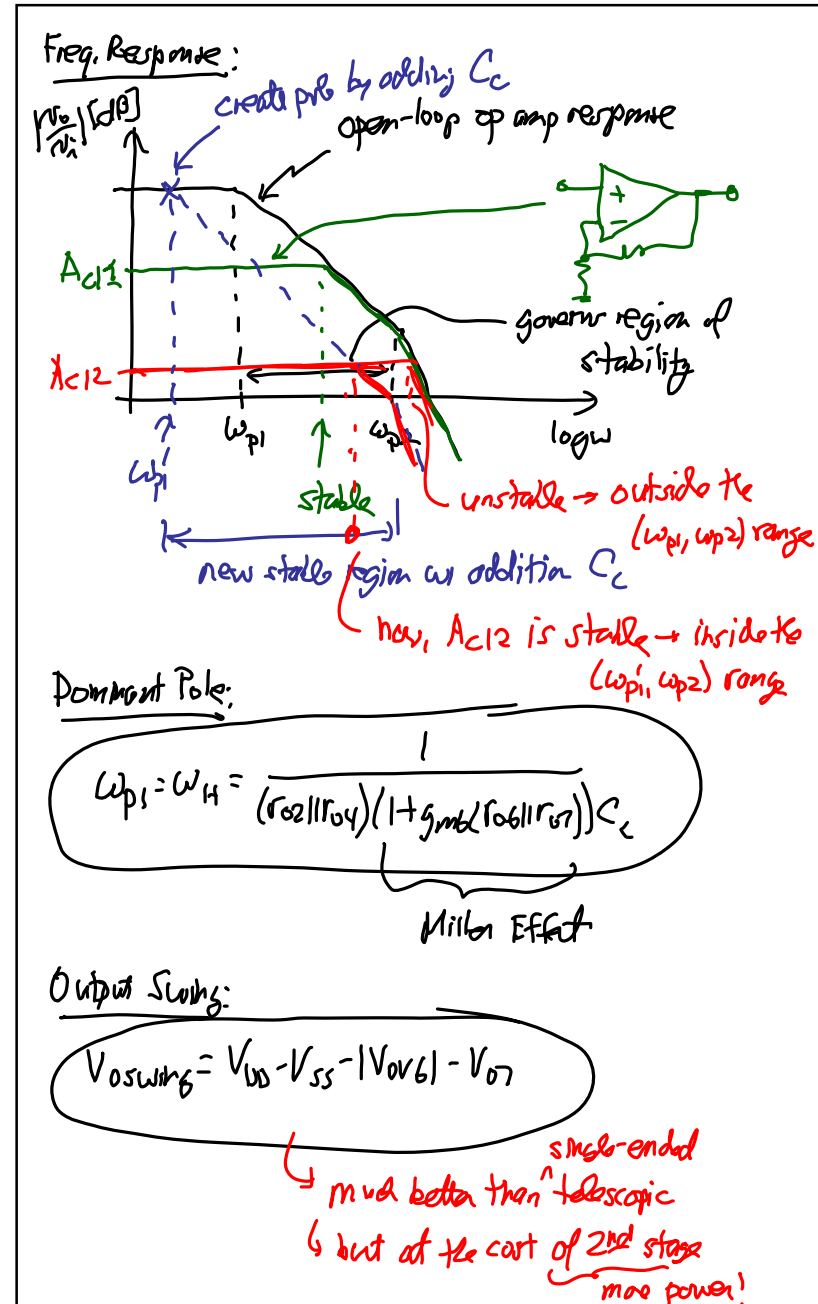 Freq. Response:
create pole by adding C_c
|v_o/v_i| [dB]
open-loop op amp response
+
−
A_cl1
govern region of
stability
A_cl2
ω_p1
ω_p2
log ω
ω_p1'
stable
unstable → outside the
(ω_p1, ω_p2) range
new stable region w/ addition C_c
now, A_cl2 is stable → inside the
(ω_p1', ω_p2) range
Dominant Pole:
ω_p1 = ω_H = 1 / ((r_o2||r_o4)(1+g_m6(r_o6||r_o7))C_c)
Miller Effect
Output Swing:
V_oswing = V_DD - V_SS - |V_OV6| - V_07
single-ended
much better than ^ telescopic
but at the cost of 2nd stage
more power!